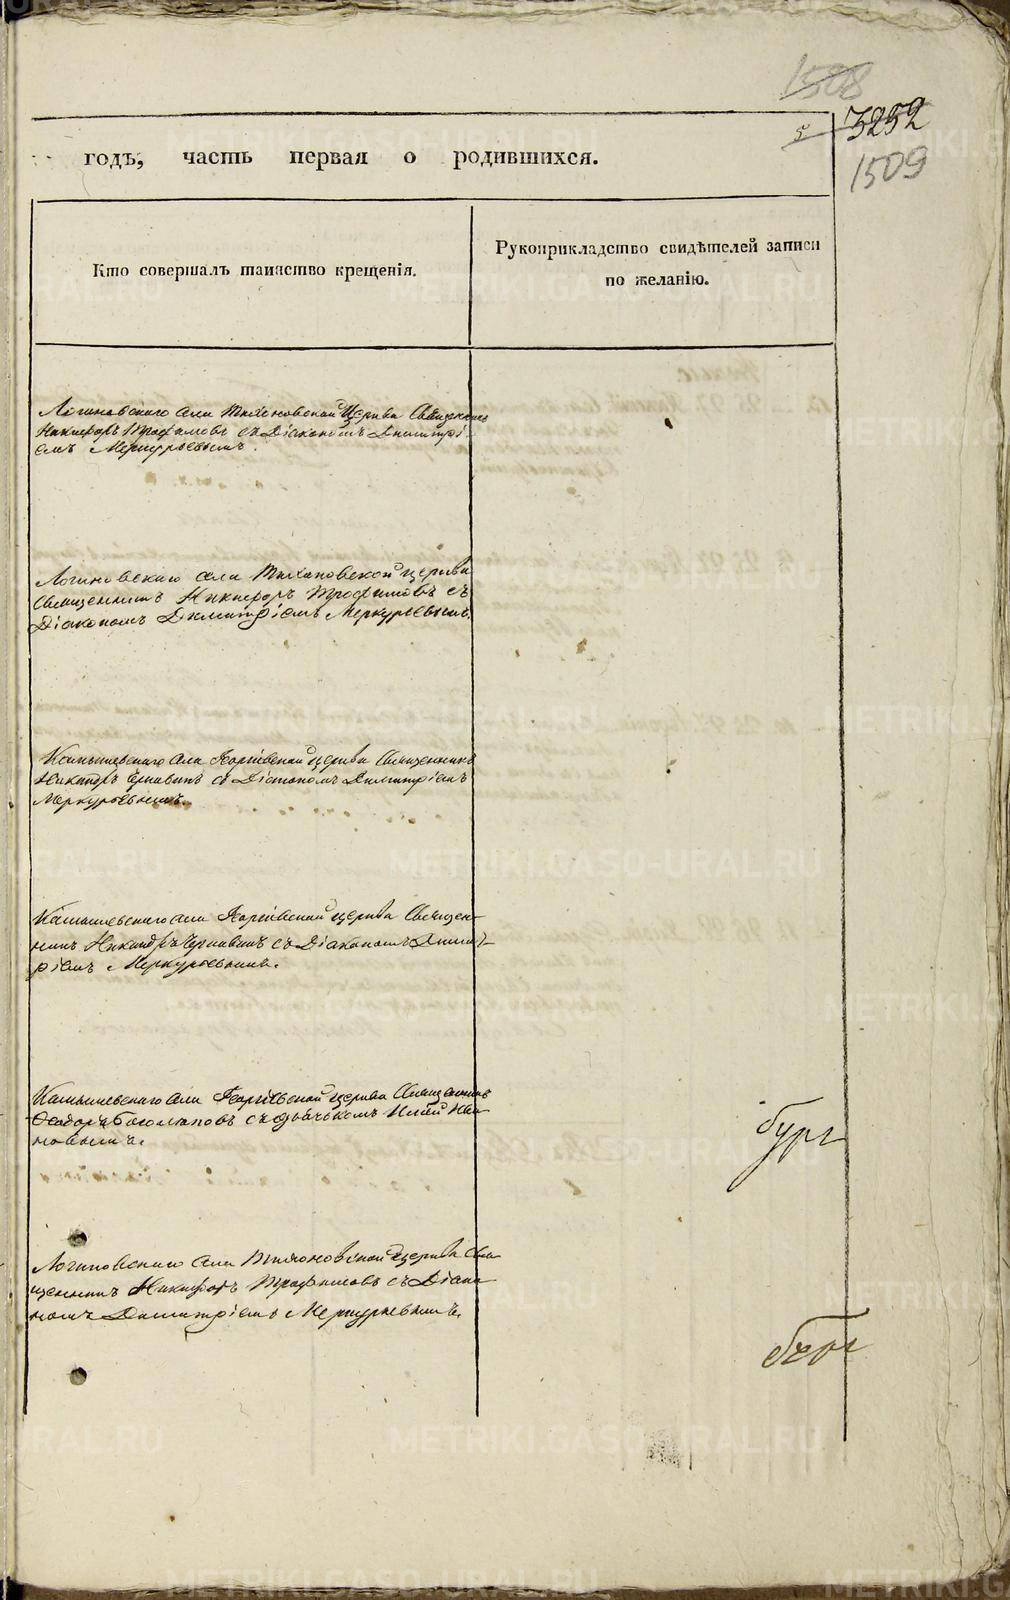 1508
5 3252
1509
годъ, часть первая о родившихся.
Кто совершалъ таинство крещенія.
Рукоприкладство свидѣтелей записи
по желанію.
Логиновскаго села Тихоновской Церкви Священникъ
Никифоръ Трофимовъ съ Діакономъ Димитрі-
емъ Меркурьевымъ.
Логиновскаго села Тихоновской церкви
Священникъ Никифоръ Трофимовъ съ
Діакономъ Димитріемъ Меркурьевымъ.
Камышевскаго села Георгіевской церкви Священникъ
Никандръ съ Діакономъ Димитріемъ
Меркурьевымъ.
Камышевскаго села Георгіевской церкви Священ-
никъ Никандръ съ Діакономъ Димит-
ріемъ Меркурьевымъ.
Камышевскаго села Георгіевской церкви Священникъ
Ѳеодоръ Богомоловъ съ дьячькомъ
Логиновскаго села Тихоновской церкви Свя-
щенникъ Никифоръ Трофимовъ съ Діако-
номъ Димитріемъ Меркурьевымъ.
METRIKI.GASO-URAL.RU